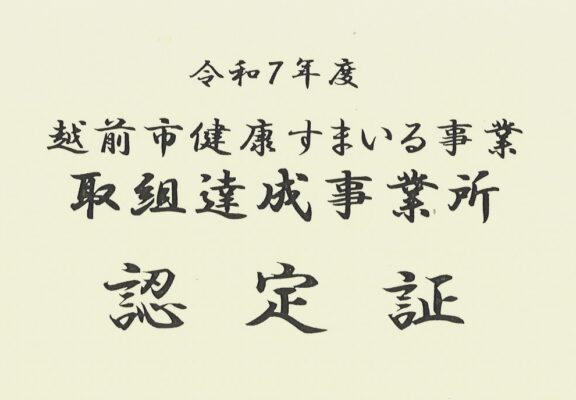 令和7年度
越前市健康すまいる事業
取組達成事業所
認定証